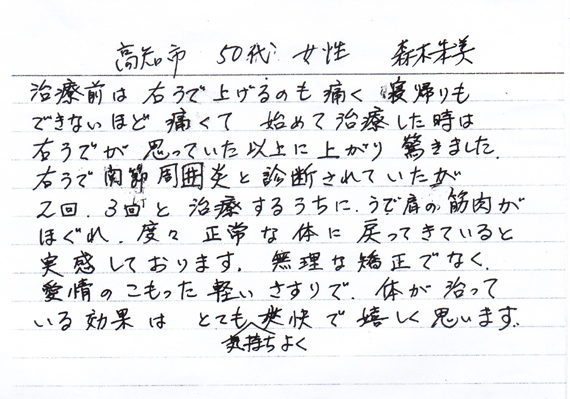 高知市 50代 女性 森木朱美
治療前は右うで上げるのも痛く 寝帰りも
できないほど 痛くて 始めて治療した時は
右うでが 思っていた以上に上がり 驚きました。
右うで関節周囲炎と診断されていたが
2回、3回と治療するうちに、うで肩の筋肉が
ほぐれ、度々 正常な体に戻ってきていると
実感しております。無理な矯正でなく、
愛情のこもった軽いさすりで、体が治って
いる効果は とても爽快で嬉しく思います。
気持ちよく